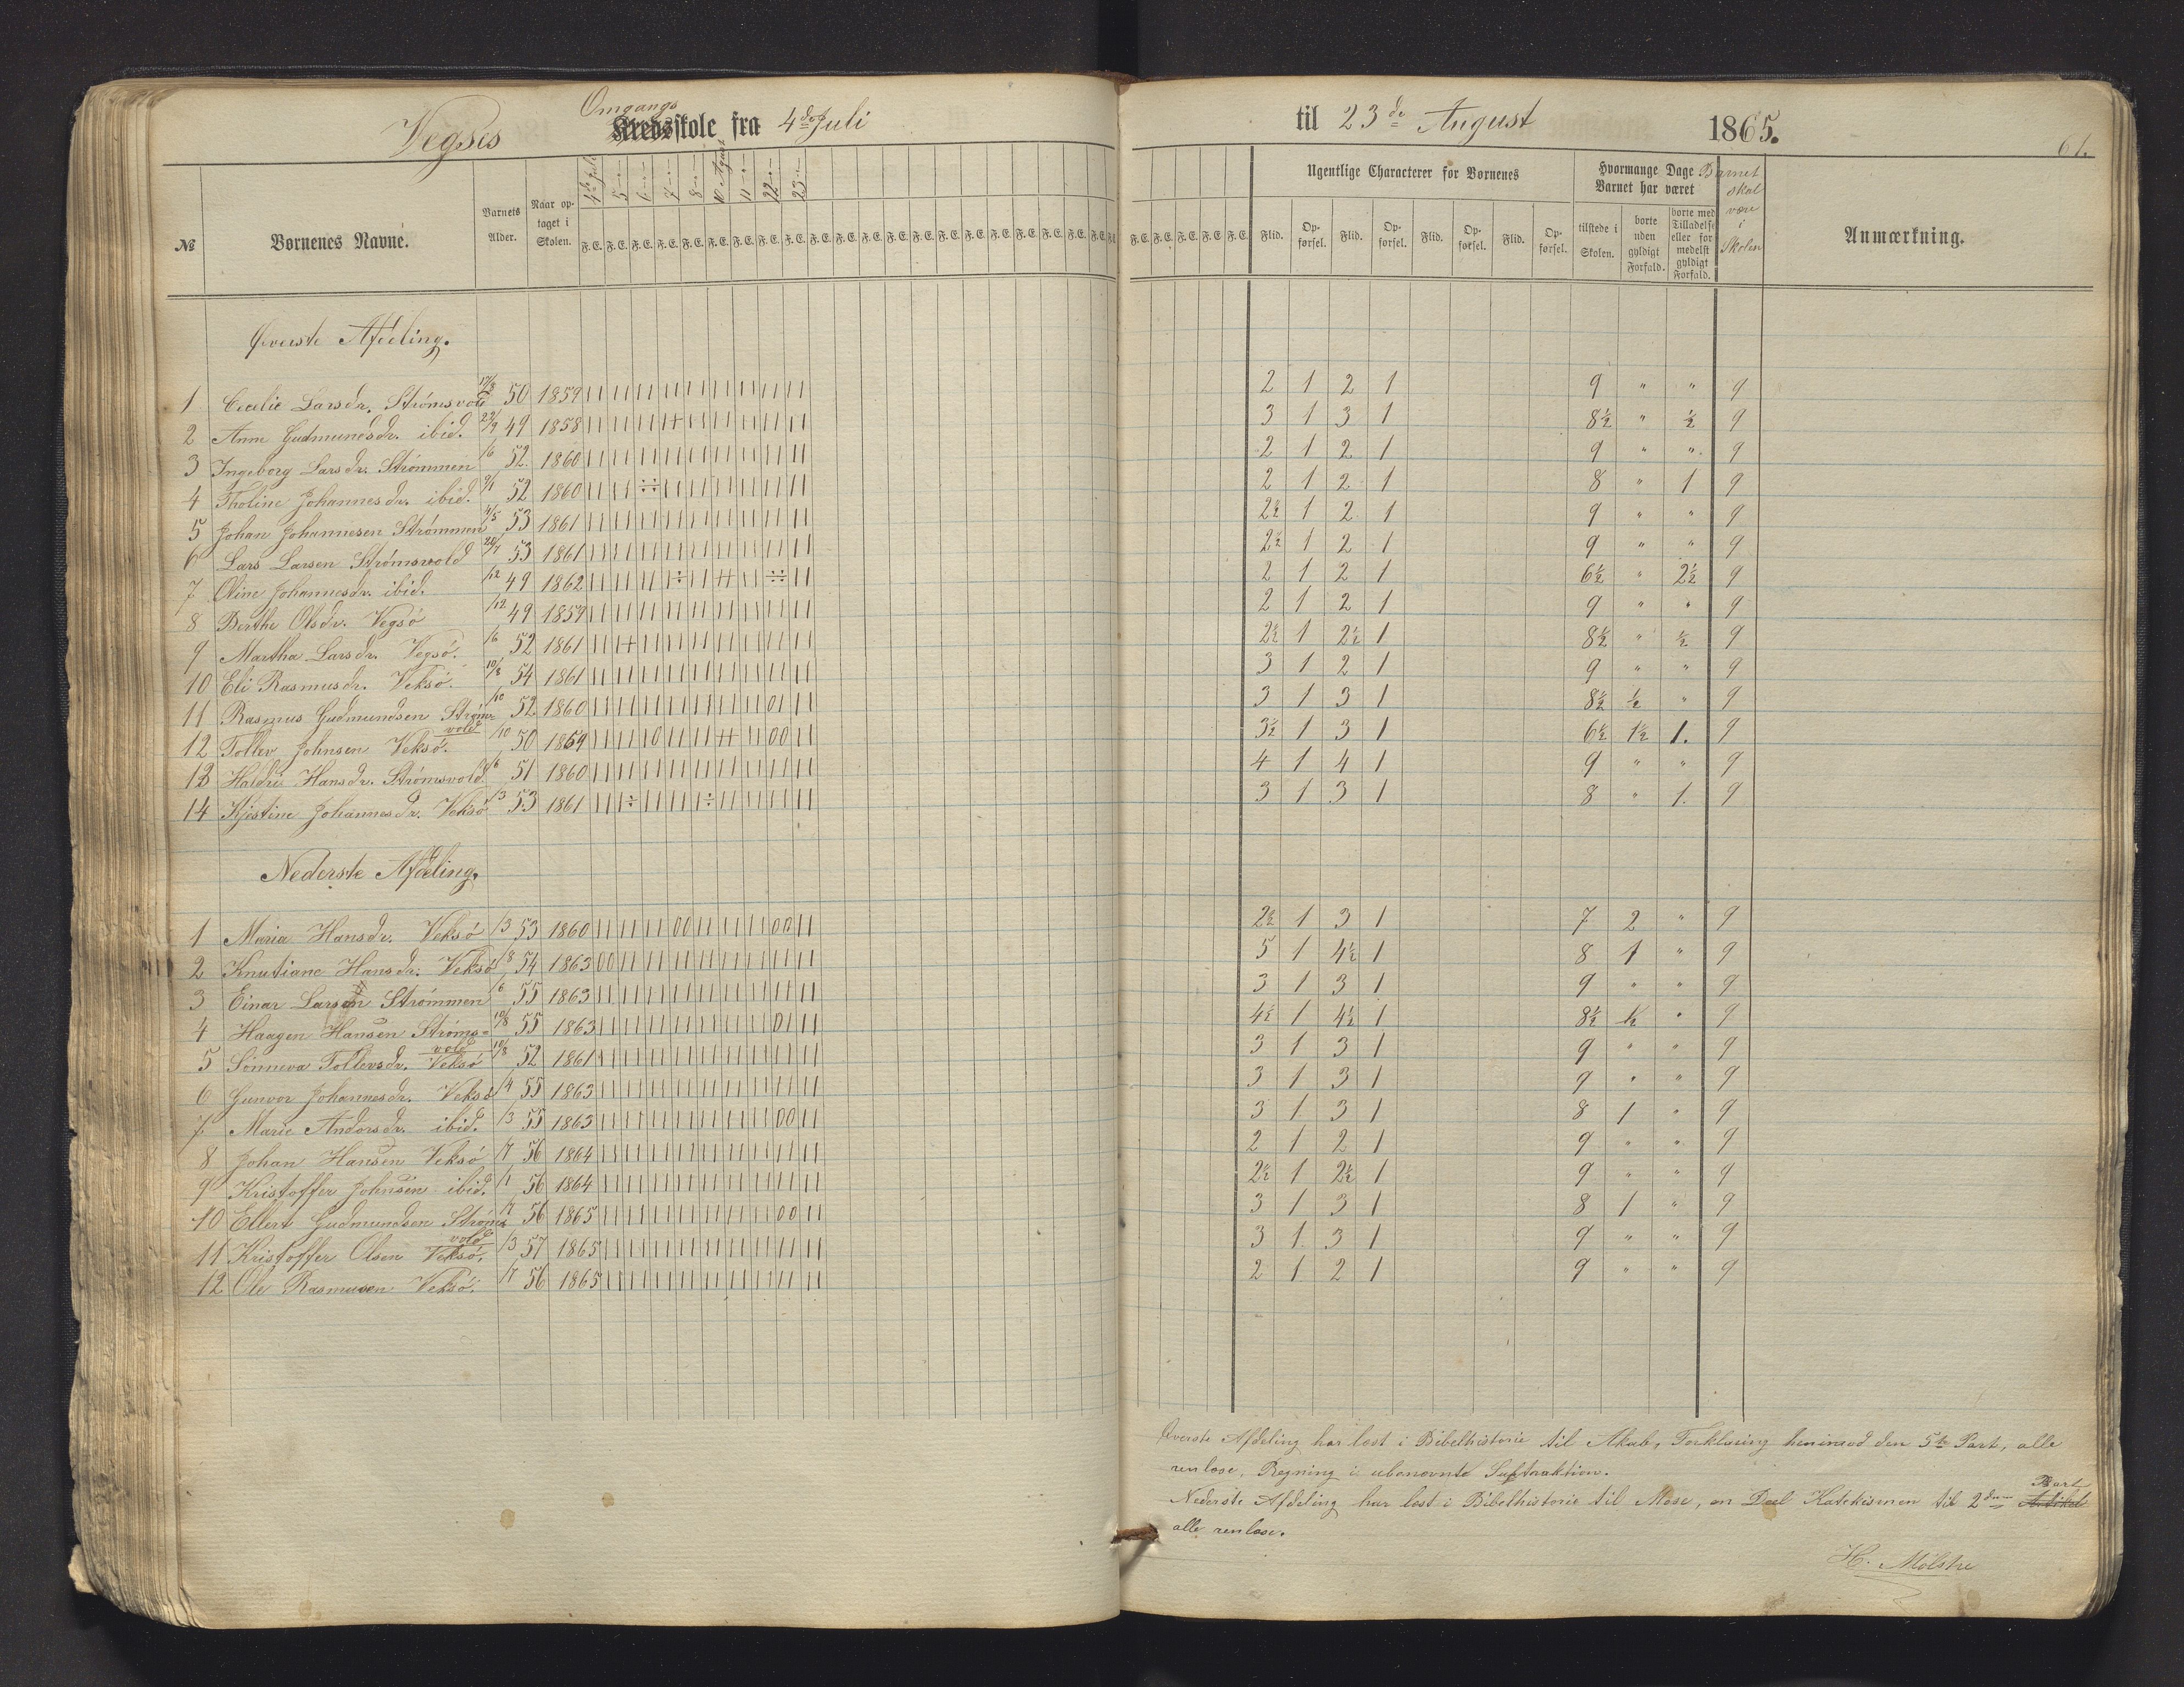 Vegsø's Omgangs Kredsskole fra 4de Juli til 23de August 1865.
61.
№ Børnenes Navne. Barnets Alder. Naar optaget i Skolen. 4de Juli 5 " 6 " 7 " 8 " 10 August 11 " 22 " 23 " Ugentlige Characterer for Børnenes Hvormange Dage Barnet har været Barnet skal være i Skolen Anmærkning.
F. E. F. E. F. E. F. E. F. E. F. E. F. E. F. E. F. E. Flid. Opførsel. Flid. Opførsel. Flid. Opførsel. Flid. Opførsel. tilstede i Skolen. borte uden gyldigt Forfald. borte med Tilladelse eller formedelst gyldigt Forfald.
Øverste Afdeling.
1 Cecilie Larsdr. Strømsvold 17/8 50 1859 2 1 2 1 9 " " 9
2 Anne Gudmundsdr. ibid. 22/9 49 1858 3 1 3 1 8½ " ½ 9
3 Ingeborg Larsdr. Strømmen /6 52. 1860 2 1 2 1 9 " " 9
4 Tholine Johannesdr. ibid. 2/1 52 1860 2 1 2 1 8 " 1 9
5 Johan Johannesen Strømmen 4/5 53 1861 2½ 1 2 1 9 " " 9
6 Lars Larsen Strømsvold 20/7 53 1861 2½ 1 2 1 9 " " 9
7 Oline Johannesdr. ibid. /12 49 1862 2 1 2 1 6½ " 2½ 9
8 Berthe Olsdr. Vegsø /12 49 1859 2 1 2 1 9 " " 9
9 Martha Larsdr. Vegsø. /6 52 1861 2½ 1 2½ 1 8½ " ½ 9
10 Eli Rasmusdr. Veksø. 10/8 54 1861 3 1 2 1 9 " " 9
11 Rasmus Gudmundsen Strømsvold /10 52 1860 3 1 3 1 8½ ½ " 9
12 Tollev Johnsen Veksø. /10 50 1859 3½ 1 3 1 6½ 1½ 1. 9
13 Haldri Hansdr. Strømsvold /6 51 1860 4 1 4 1 9 " " 9
14 Kjestine Johannesdr. Veksø /3 53 1861 3 1 3 1 8 " 1. 9
Nederste Afdeling.
1 Maria Hansdr. Veksø /3 53 1860 2½ 1 3 1 7 2 " 9
2 Knutiane Hansdr. Veksø /8 54 1863 5 1 4½ 1 8 1 " 9
3 Einar Larsen Strømmen /6 55 1863 3 1 3 1 9 " " 9
4 Haagen Hansen Strømsvold 10/8 55 1863 4½ 1 4½ 1 8½ ½ " 9
5 Sønneva Tollevsdr. Veksø 10/8 52 1861 3 1 3 1 9 " " 9
6 Gunvor Johannesdr. Veksø /4 55 1863 3 1 3 1 9 " " 9
7. Marie Andorsdr. ibid. /3 55 1863 3 1 3 1 8 1 " 9
8 Johan Hansen Veksø /7 56 1864 2 1 2 1 9 " " 9
9 Kristoffer Johnsen ibid. /1 56 1864 2½ 1 2½ 1 9 " " 9
10 Ellert Gudmundsen Strømsvold /7 56 1865 3 1 3 1 8 1 " 9
11 Kristoffer Olsen Veksø. /3 57 1865 3 1. 3 1 9 " " 9
12 Ole Rasmusen Veksø. /7 56 1865 2 1 2 1 9 " " 9
Øverste Afdeling har læst i Bibelhistorie til Akab, Forklaring henimod den 5te Part, alle
renlæse, Regning i ubenævnte Suptraktion.
Nederste Afdeling har læst i Bibelhistorie til Mose, en Deel Katekismen til 2den Artikel Part
alle renlæse.
H. Mølstre